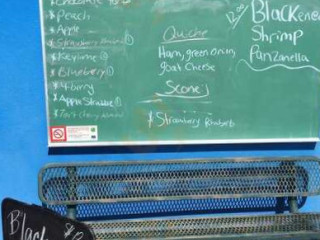 Chocolate
$ Peach
$ Apple
$ Strawberry
$ Keylime
$ Blueberry
$ 4 Berry
$ Apple Strudel
Quiche
Ham, green onion,
goat Cheese
Scone's
$ Strawberry Rhubarb
Blackened
Shrimp
Panzanella
Black